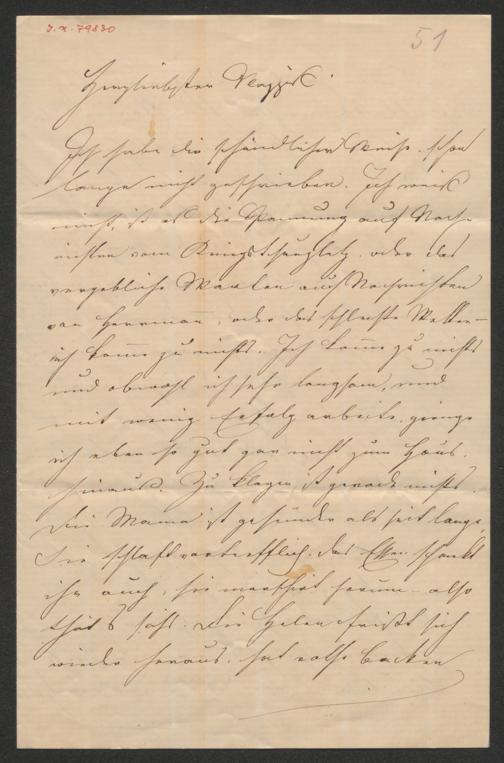 J. N. 79830
51
Herzliebster
Ich habe dir schändlicher Weise schon
lange nicht geschrieben. Ich weiß
nicht, ist es die Spannung auf Nach-
richten vom Kriegsschauplatz, oder das
vergebliche Warten auf Nachrichten
von Herrman, oder das schlechte Wetter –
ich komme zu nichts. Ich komme zu nichts
und obwohl ich sehr langsam, und
mit wenig Erfolg arbeite, ginge
ich eben so gut gar nicht zum Haus
hinaus. Zu klagen ist gerade nichts.
Die Mama ist gesünder als seit lange,
sie schlaft vortrefflich, das Essen schmeckt
ihr auch, sie herum – also
thut's Die Helen frißt sich
wieder heraus, hat rothe Backen